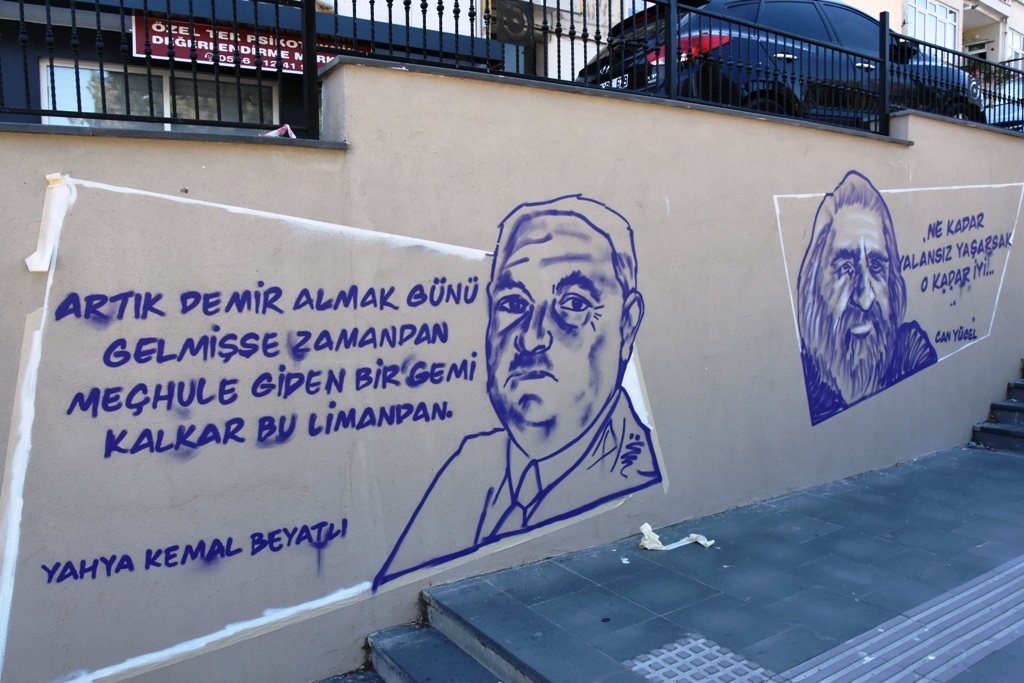 ÖZEL TEK PSİKOT
DEĞERLENDİRME MERK
ARTIK DEMİR ALMAK GÜNÜ
GELMİŞSE ZAMANDAN
MEÇHULE GİDEN BİR GEMİ
KALKAR BU LİMANDAN.
YAHYA KEMAL BEYATLI
NE KADAR
YALANSIZ YAŞARSAK
O KADAR İYİ...
CAN YÜCEL